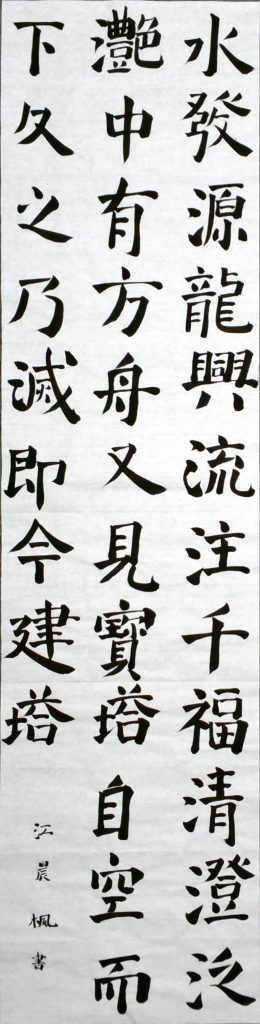 水發源龍興流注千福清澄泛
灩中有方舟又見寶塔自空而
下久之乃滅即今建塔
江晨楓書